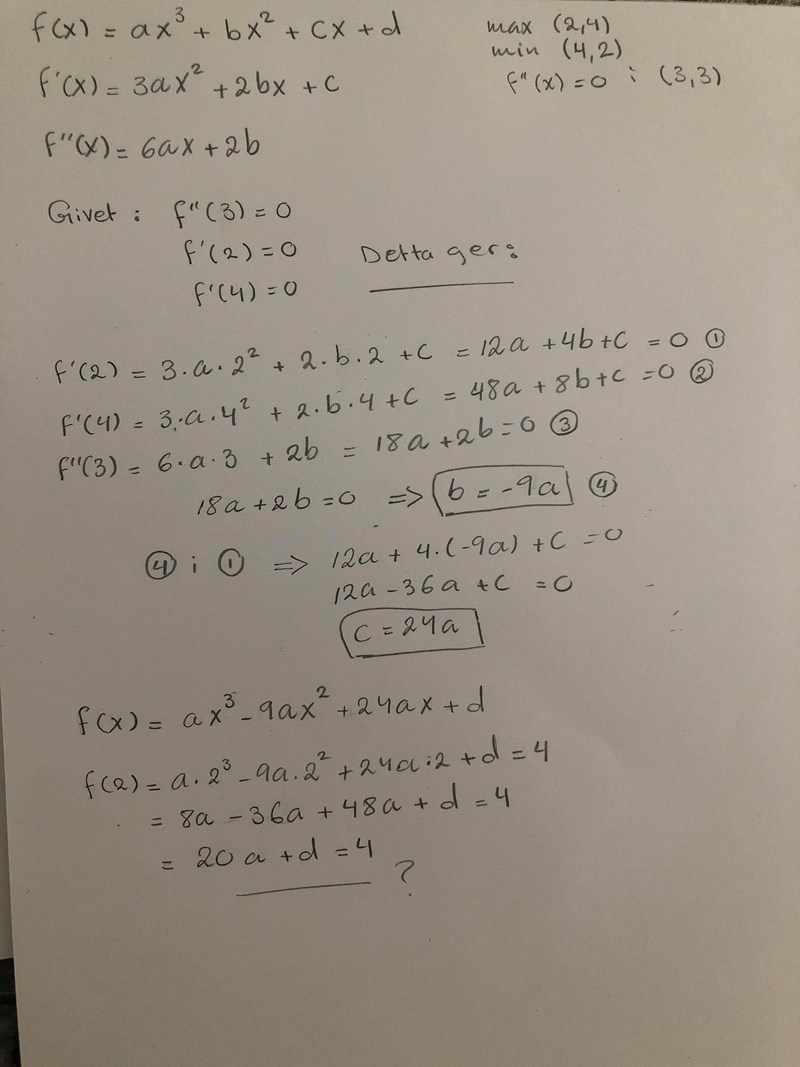 f(x) = ax³ + bx² + cx + d
max (2,4)
min (4,2)
f'(x) = 3ax² + 2bx + c
f''(x) = 0 i (3,3)
f''(x) = 6ax + 2b
Givet : f''(3) = 0
f'(2) = 0 Detta ger:
f'(4) = 0
f'(2) = 3·a·2² + 2·b·2 + c = 12a + 4b + c = 0 ①
f'(4) = 3·a·4² + 2·b·4 + c = 48a + 8b + c = 0 ②
f''(3) = 6·a·3 + 2b = 18a + 2b = 0 ③
18a + 2b = 0 => b = -9a ④
④ i ① => 12a + 4·(-9a) + c = 0
12a - 36a + c = 0
c = 24a
f(x) = ax³ - 9ax² + 24ax + d
f(2) = a·2³ - 9a·2² + 24a·2 + d = 4
= 8a - 36a + 48a + d = 4
= 20a + d = 4 ?